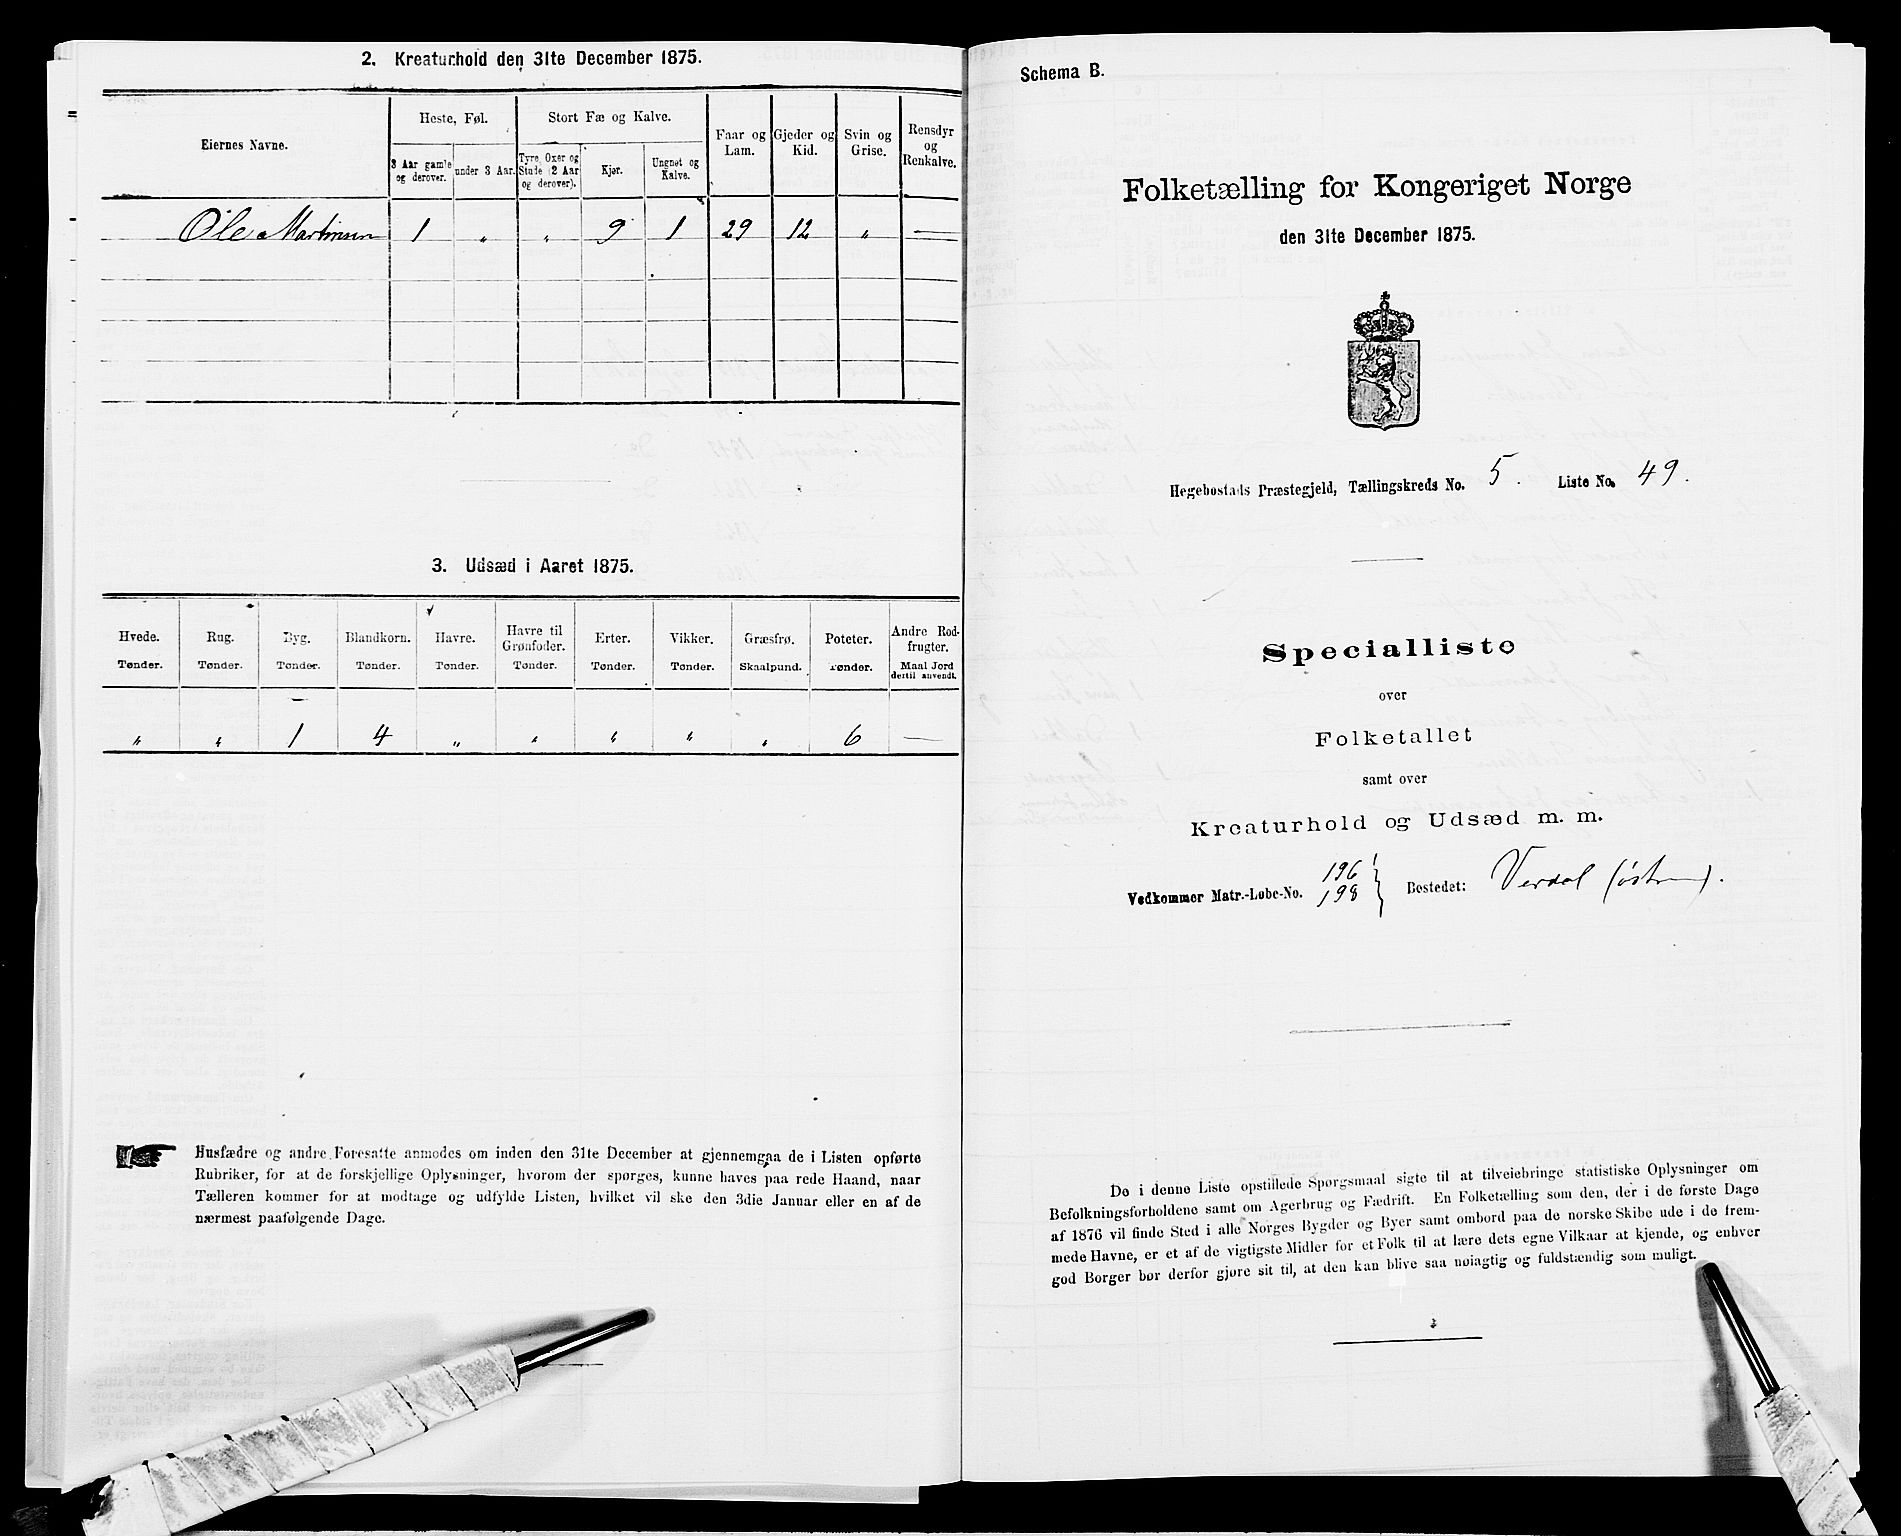 2. Kreaturhold den 31te December 1875.
Eiernes Navne.
Heste, Føl.
Stort Fæ og Kalve.
Faar og Lam.
Gjeder og Kid.
Svin og Grise.
Rensdyr og Renkalve.
3 Aar gamle og derover.
under 3 Aar.
Tyre, Oxer og Stude (2 Aar og derover).
Kjør.
Ungnet og Kalve.
Ole Martinsen 1 " " 9 1 29 12 " —
3. Udsæd i Aaret 1875.
Hvede. Rug. Byg. Blandkorn. Havre. Havre til Grønfoder. Erter. Vikker. Græsfrø. Poteter. Andre Rodfrugter.
Tønder. Tønder. Tønder. Tønder. Tønder. Tønder. Tønder. Tønder. Skaalpund. Tønder. Maal Jord dertil anvendt.
" " 1 4 " " " " " 6 —
Husfædre og andre Foresatte anmodes om inden den 31te December at gjennemgaa de i Listen opførte
Rubriker, for at de forskjellige Oplysninger, hvorom der spørges, kunne haves paa rede Haand, naar
Tælleren kommer for at modtage og udfylde Listen, hvilket vil ske den 3die Januar eller en af de
nærmest paafølgende Dage.
Schema B.
Folketælling for Kongeriget Norge
den 31te December 1875.
Hegebostads Præstegjeld, Tællingskreds No. 5. Liste No. 49.
Specialliste
over
Folketallet
samt over
Kreaturhold og Udsæd m. m.
Vedkommer Matr.-Løbe-No. 196 198 } Bostedet: Verdal (østre).
De i denne Liste opstillede Spørgsmaal sigte til at tilveiebringe statistiske Oplysninger om
Befolkningsforholdene samt om Agerbrug og Fædrift. En Folketælling som den, der i de første Dage
af 1876 vil finde Sted i alle Norges Bygder og Byer samt ombord paa de norske Skibe ude i de frem-
mede Havne, er et af de vigtigste Midler for et Folk til at lære dets egne Vilkaar at kjende, og enhver
god Borger bør derfor gjøre sit til, at den kan blive saa nøiagtig og fuldstændig som muligt.